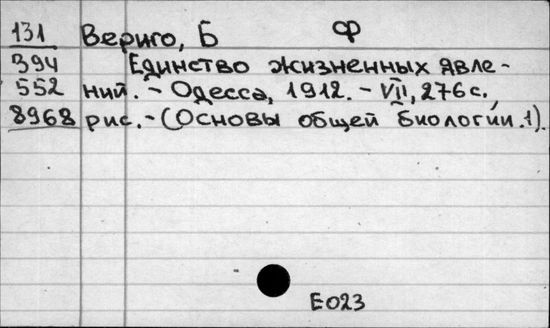 131 Вериго, Б Ф
394 Единство жизненных явле-
552 ний. - Одесса, 1912. - VII, 276 с.,
8968 рис. - (Основы общей биологии. 1).
E023